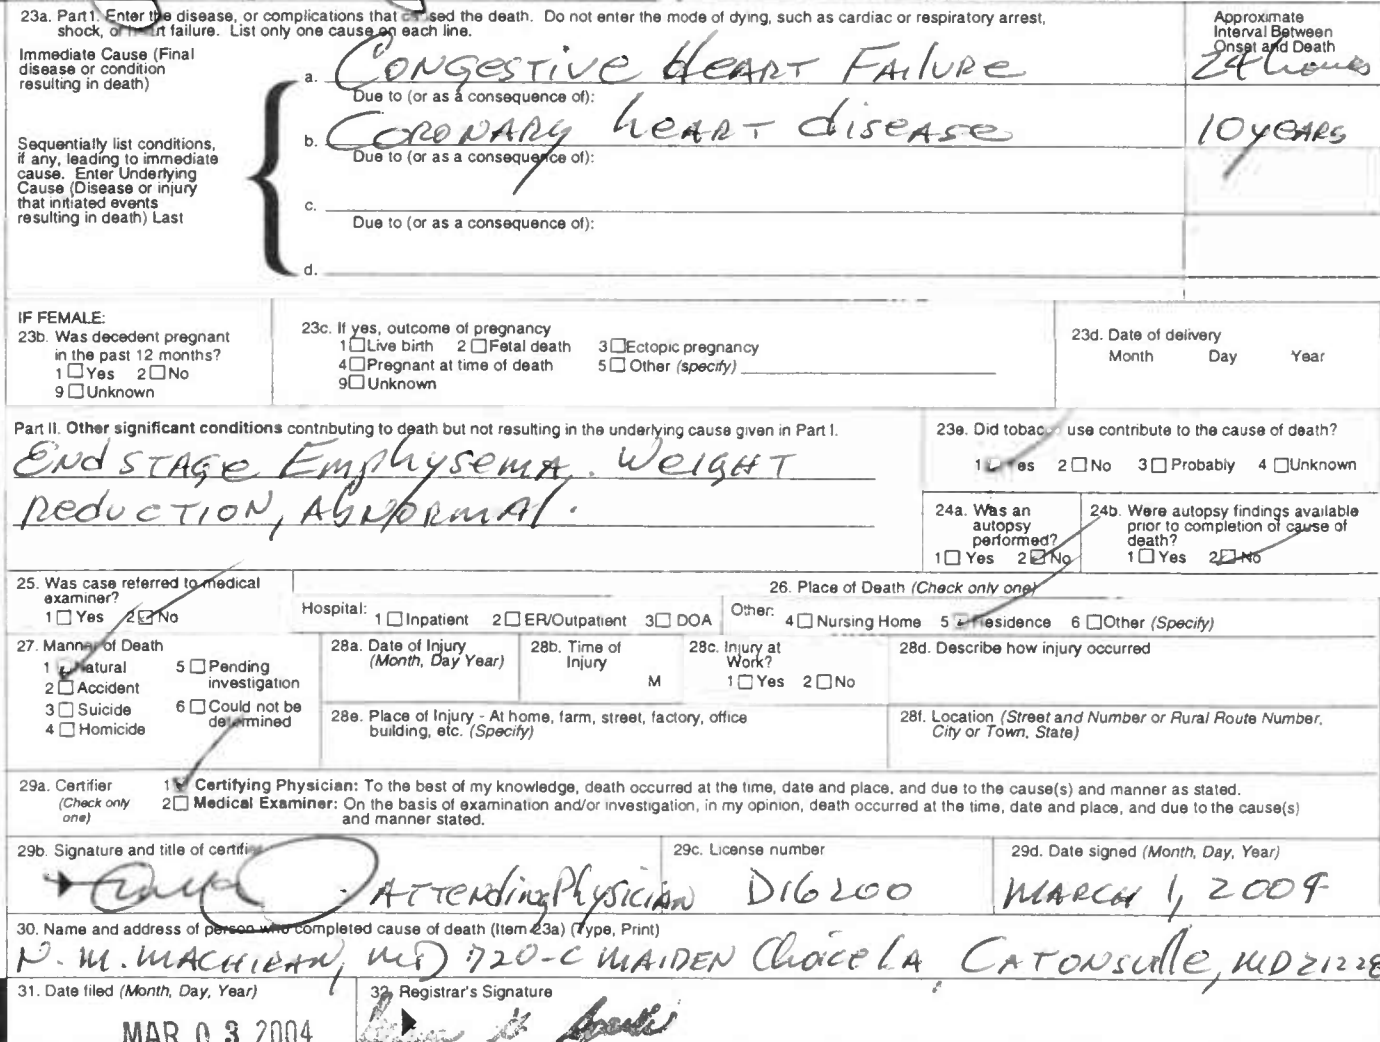 23a. Part1. Enter the disease, or complications that caused the death. Do not enter the mode of dying, such as cardiac or respiratory arrest,
shock, or heart failure. List only one cause on each line.
Approximate
Interval Between
Onset and Death
Immediate Cause (Final
disease or condition
resulting in death)
a. CONGESTIVE HEART FAILURE 24 hours
Due to (or as a consequence of):
b. CORONARY heART disease 10 years
Due to (or as a consequence of):
Sequentially list conditions,
if any, leading to immediate
cause. Enter Underlying
Cause (Disease or injury
that initiated events
resulting in death) Last
c.
Due to (or as a consequence of):
d.
IF FEMALE:
23b. Was decedent pregnant
in the past 12 months?
1 Yes 2 No
9 Unknown
23c. If yes, outcome of pregnancy
1 Live birth 2 Fetal death 3 Ectopic pregnancy
4 Pregnant at time of death 5 Other (specify)
9 Unknown
23d. Date of delivery
Month Day Year
Part II. Other significant conditions contributing to death but not resulting in the underlying cause given in Part I.
End STAGE Emphysema. Weight
Reduction, Abnormal.
23e. Did tobacco use contribute to the cause of death?
1 Yes 2 No 3 Probably 4 Unknown
24a. Was an
autopsy
performed?
1 Yes 2 No
24b. Were autopsy findings available
prior to completion of cause of
death?
1 Yes 2 No
25. Was case referred to medical
examiner?
1 Yes 2 No
26. Place of Death (Check only one)
Hospital: 1 Inpatient 2 ER/Outpatient 3 DOA Other: 4 Nursing Home 5 Residence 6 Other (Specify)
27. Manner of Death
1 Natural 5 Pending
investigation
2 Accident
3 Suicide 6 Could not be
determined
4 Homicide
28a. Date of Injury
(Month, Day Year)
28b. Time of
Injury
M
28c. Injury at
Work?
1 Yes 2 No
28d. Describe how injury occurred
28e. Place of Injury - At home, farm, street, factory, office
building, etc. (Specify)
28f. Location (Street and Number or Rural Route Number,
City or Town, State)
29a. Certifier
(Check only
one)
1 Certifying Physician: To the best of my knowledge, death occurred at the time, date and place, and due to the cause(s) and manner as stated.
2 Medical Examiner: On the basis of examination and/or investigation, in my opinion, death occurred at the time, date and place, and due to the cause(s)
and manner stated.
29b. Signature and title of certifier
Attending Physician
29c. License number
D16200
29d. Date signed (Month, Day, Year)
MARCH 1, 2004
30. Name and address of person who completed cause of death (Item 23a) (Type, Print)
N. M. MACHIRAN, MD 720-C MAIDEN Choice LA CATONSville, MD 21228
31. Date filed (Month, Day, Year)
MAR 03 2004
32. Registrar's Signature